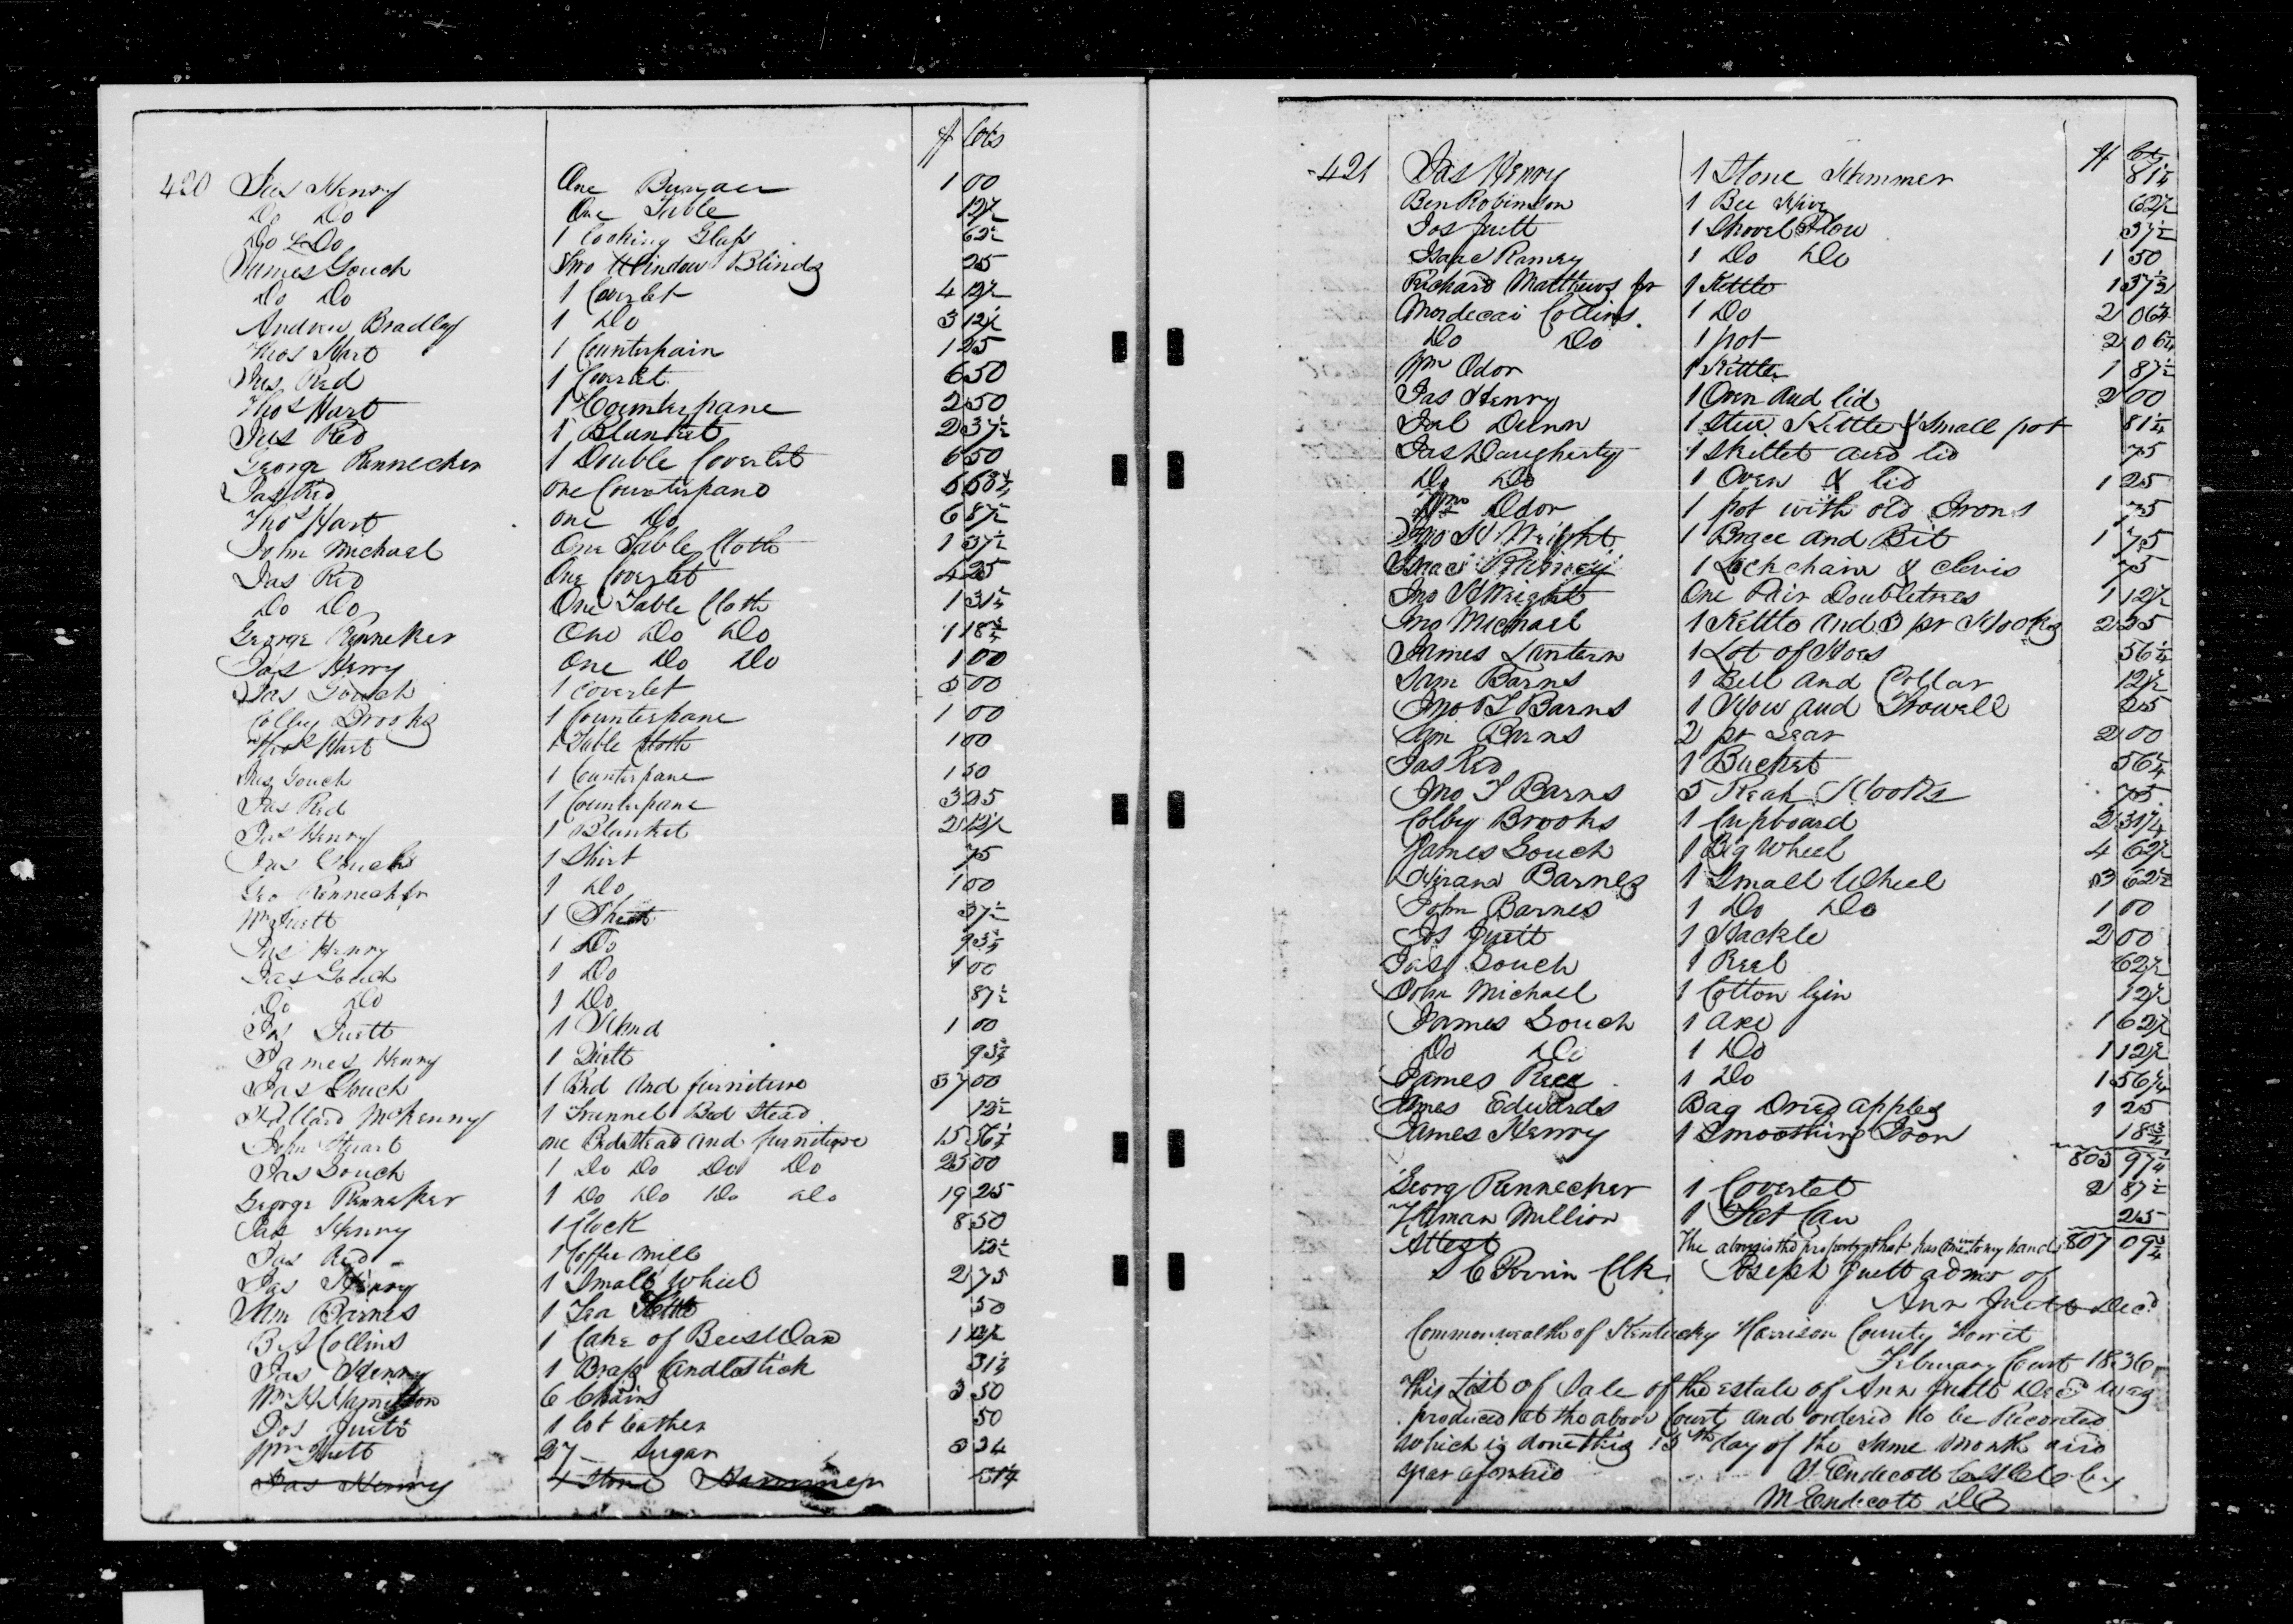 $ Cts
420 Jas Henry One Bureau 1 00
Do Do One Table 12½
Do & Do 1 Looking Glass 62½
James Gouch Two Window Blinds 25
Do Do 1 Coverlet 4 12½
Andrew Bradley 1 Do 3 12½
Thos Hart 1 Counterpain 1 25
Jas Red 1 Coverlet 6 50
Thos Hart 1 Counterpane 2 50
Jas Red 1 Blanket 2 37½
George Rennecker 1 Double Coverlet 6 50
Jas Red one Counterpane
Thos Hart one Do 6 87½
John Michael One Table Cloth 1 37½
Jas Red One Coverlet 4 25
Do Do One Table Cloth 1 31¼
George Renneker One Do Do 1 18¾
Jas Henry One Do Do 1 00
Jas Gouch 1 Coverlet 5 00
Colby Brooks 1 Counterpane 1 00
Thos Hart 1 Table Cloth 1 00
Jas Gouch 1 Counterpane 1 50
Jas Red 1 Counterpane 3 25
Jas Henry 1 Blanket 2 12½
Jas Gouch 1 Shirt 75
Geo Renneckr 1 Do 1 00
Wm Juett 1 Sheet 37½
Jas Henry 1 Do 93¾
Jas Gouch 1 Do 1 00
Do Do 1 Do 87½
Juett 1 Stand 1 00
James Henry 1 Quilt 93¾
Jas Gouch 1 Bed and furniture 37 00
McKenny 1 Trunnel Bed Stead 12½
John Stuart one Bedstead and furniture 15 56¼
Jas Gouch 1 Do Do Do Do 25 00
George Renneker 1 Do Do Do Do 19 25
Jas Henry 1 Clock 8 50
Jas Red 1 Coffee mill 12½
Jas Henry 1 Small Wheel 2 75
Wm Barnes 1 Tea Kettle 50
B A Collins 1 Cake of Bees Wax 1 12½
Jas Henry 1 Brass Candlestick 31¼
Wm H Hamilton 6 Chairs 3 50
Jos Juett 1 lot Leather 50
Wm Juett 27 Sugar 3 34
Jas Henry 1 Stone Hammer
$ Cts
421 Jas Henry 1 Stone Hammer 81¼
Ben Robinson 1 Bee Hive 62½
Jos Juett 1 Shovel Plow 37½
Isaac Ramey 1 Do Do 1 50
Richard Matthews Jr 1 Kettle 1 37½
Mordecai Collins 1 Do 2 06¼
Do Do 1 pot 2 06¼
Wm Odor 1 Kettle 1 87½
Jas Henry 1 Oven and lid 2 00
Dunn 1 Stew Kettle & Small pot 81¼
Jas Daugherty 1 Skillet and lid 75
Do Do 1 Oven & lid 1 25
Wm Odor 1 pot with old Irons 75
Jno H Wright 1 Brace and Bit 1 75
Isaac Ramey 1 Lock chain & Clevis 75
Jno H Wright One Pair Doubletrees 1 12½
Jno Michael 1 Kettle and 3 pr Hooks 2 25
James Lantern 1 Lot of Hoes 56¼
Sam Barns 1 Bell and Collar 12½
Jno T Barns 1 How and Trowell 25
Sam Barns 2 pr Gear 2 00
Jas Red 1 Bucket 56¼
Jno T Barns 5 Hooks 75
Colby Brooks 1 Cupboard 2 31¼
James Gouch 1 Big Wheel 4 62½
Hiram Barnes 1 Small Wheel 3 62½
John Barnes 1 Do Do 1 00
Jos Juett 1 Hackle 2 00
Jas Gouch 1 Reel 62½
John Michael 1 Cotton Gin 12½
James Gouch 1 axe 1 62½
Do Do 1 Do 1 12½
James Reed 1 Do 1 56¼
James Edwards Bag Dried apples 1 25
James Henry 1 Smoothing Iron 18¾
805 97¼
Georg Rennecker 1 Coverlet 2 87½
Million 1 25
Attest The above is the property that has come to my hands 807 09¾
Perrin Clk Joseph Juett admr of
Ann Juett Decd
Commonwealth of Kentucky Harrison County Towit
February Court 1836
This List of Sale of the estate of Ann Juett Decd was
produced at the above Court and ordered to be Recorded
which is done this 15th day of the same month and
year aforesaid Endecott by
M Endecott DC